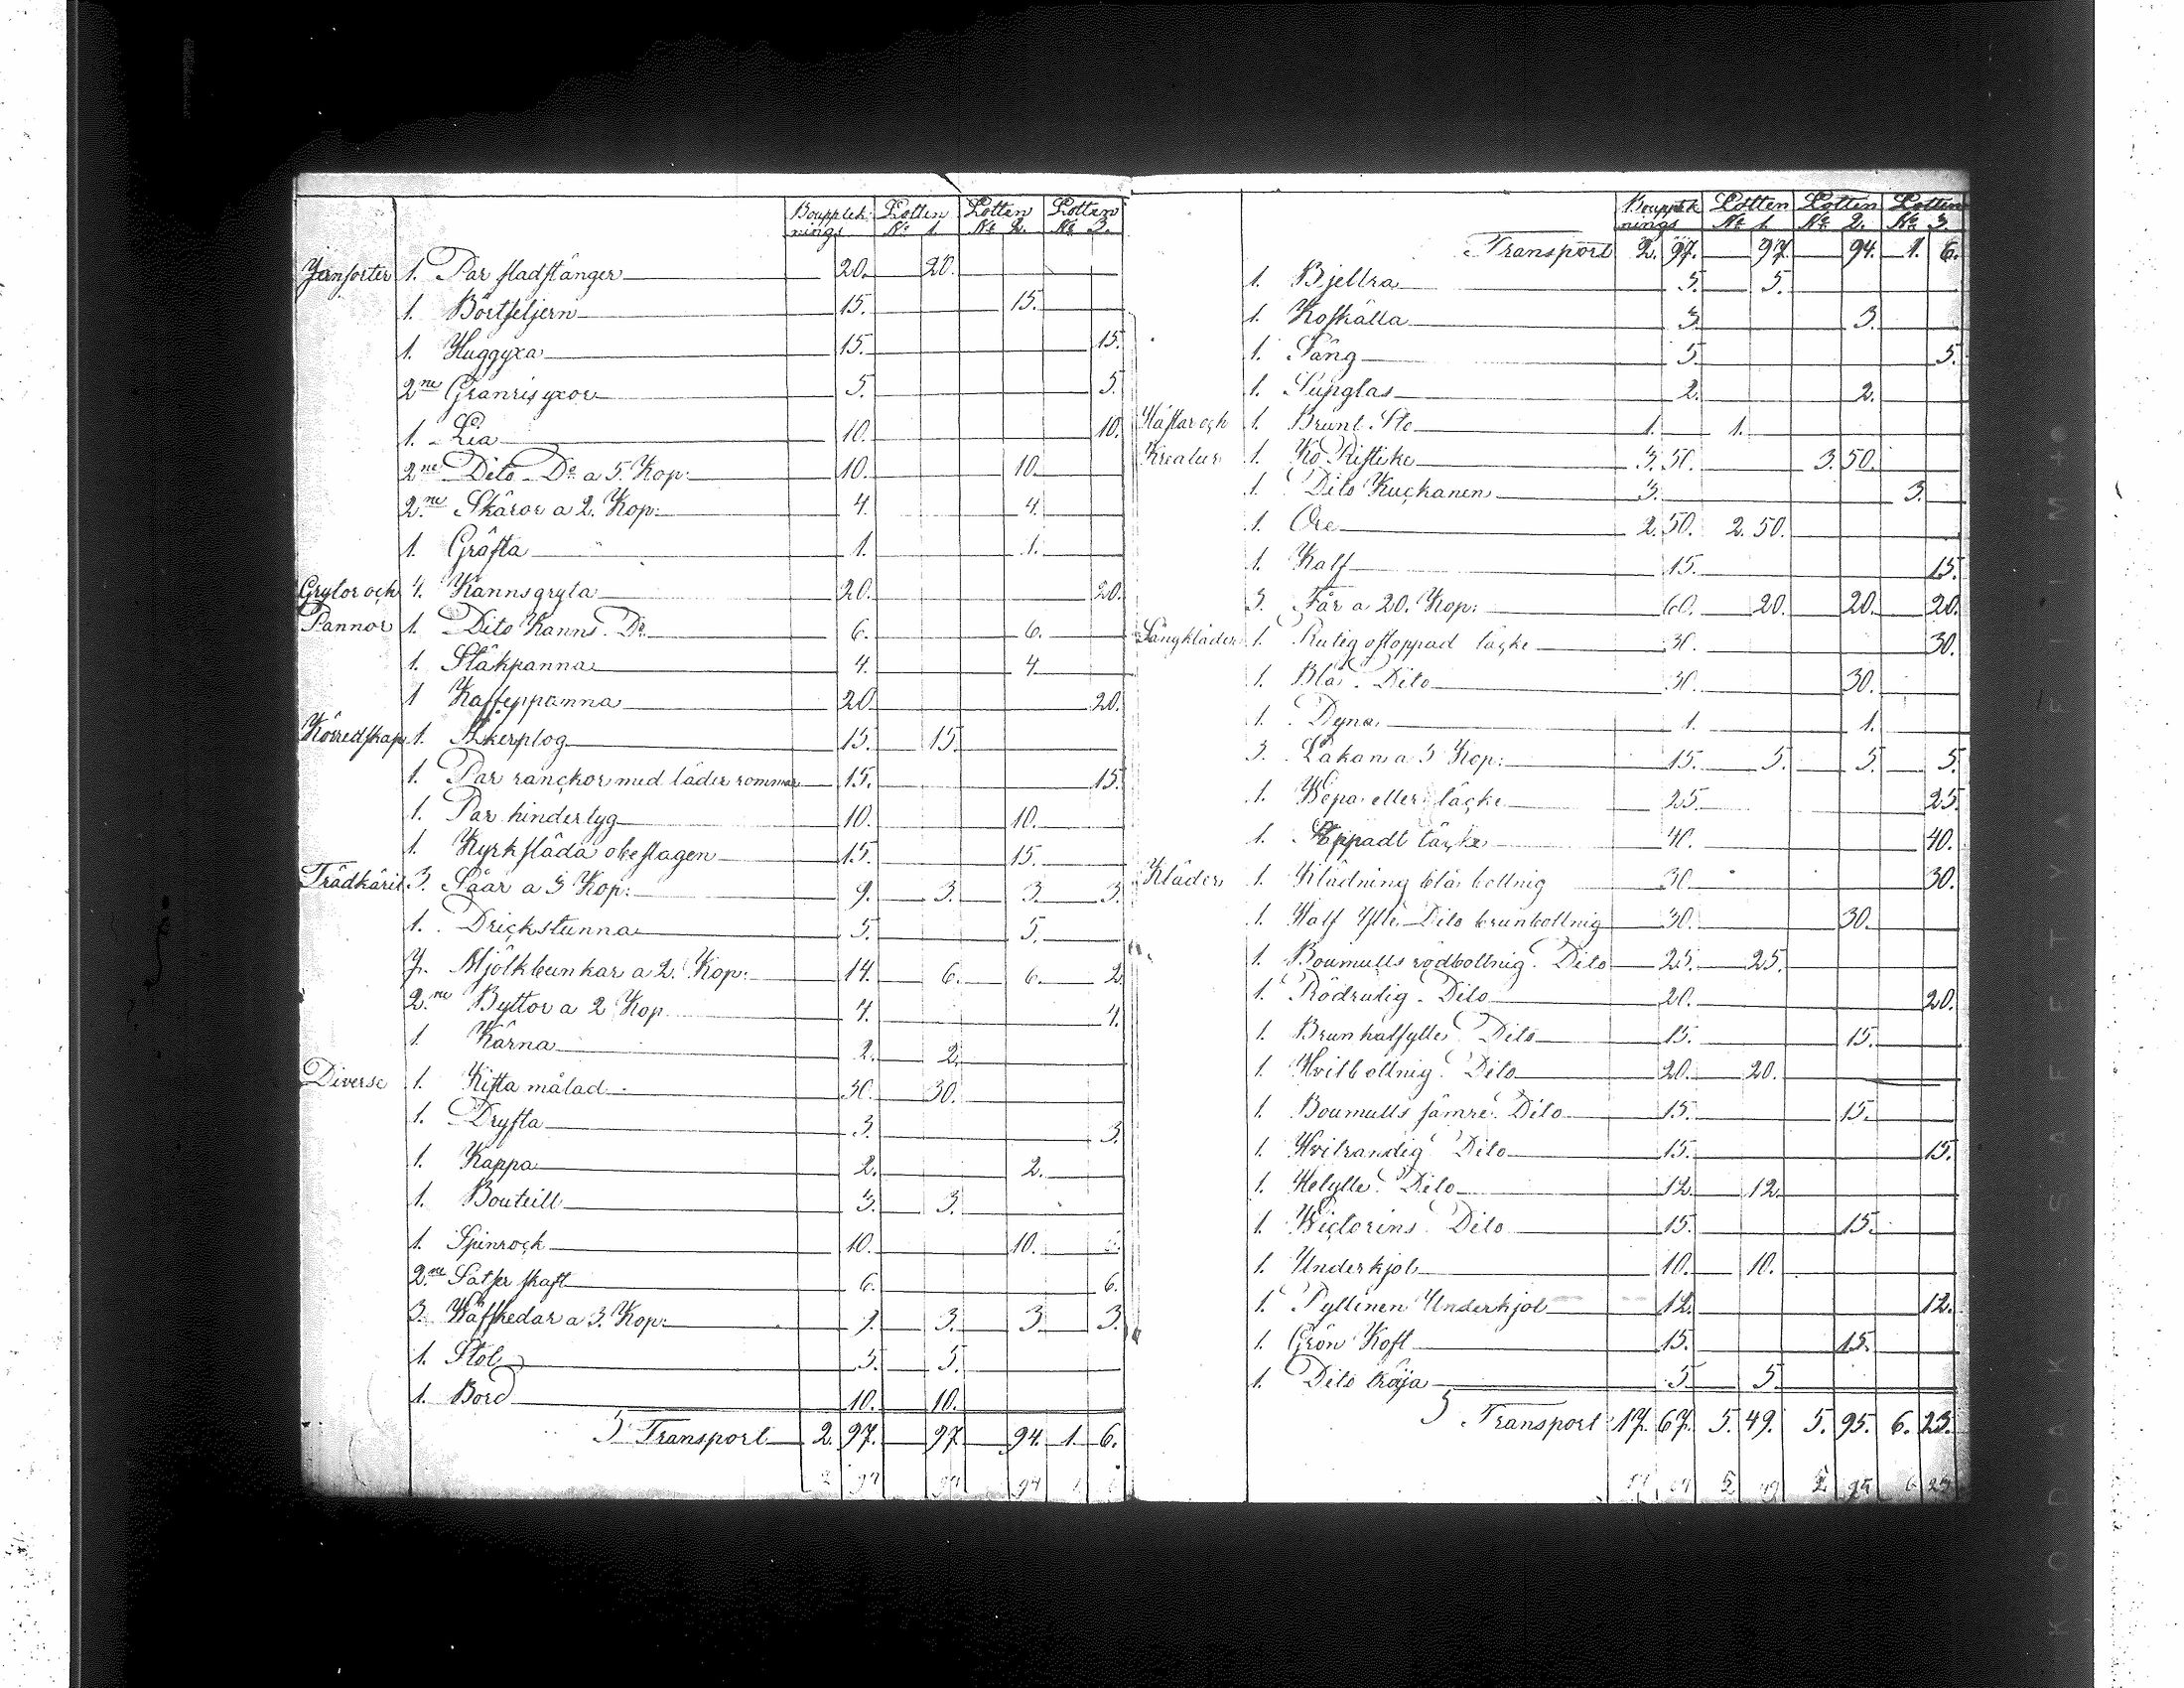 Boupptek- Lotten Lotten Lotten
nings N: 1. N: 2. N: 3.
Jernsorter 1. Par stadstänger 20. 20.
1. Börtseljern 15. 15.
1. Huggyxa 15. 15.
2ne Granrisyxor 5. 5.
1. Lia 10. 10.
2ne Dito Do a 5. Kop: 10. 10.
2ne Skäror a 2. Kop: 4. 4.
1. Gräfta 1. 1.
Grytor och 4. Kannsgryta 20. 20.
Pannor 1. Dito Kanns. Do 6. 6.
1. Stäkpanna 4. 4.
1 Kaffeppanna 20. 20.
Körredskap 1. Åkerplog 15. 15.
1. Par ranckor med läder rommar 15. 15.
1. Par hindertyg 10. 10.
1. Kyrksläda obeslagen 15. 15.
Trädkäril 3. Såar a 3 Kop: 9. 3. 3. 3.
1. Drickstunna 5. 5.
7. Mjölkbunkar a 2. Kop: 14. 6. 6. 2.
2ne Byttor a 2 Kop 4. 4.
1 Kärna 2. 2.
Diverse 1. Kista målad 30. 30.
1. Dryfta 3. 3.
1. Kappa 2. 2.
1. Bouteill 3. 3.
1. Spinrock 10. 10.
2ne Satser skaft 6. 6.
3. Wäfskedar a 3. Kop: 9. 3. 3. 3.
1. Stol 5. 5.
1. Bord 10. 10.
Transport 2. 97. 97. 94. 1. 6.
2 97 97 94 1 6
Bouppték Lotten Lotten Lotten
nings N: 1. N: 2. N: 3.
Transport 2. 97. 97. 94. 1. 6.
1. Bjellra 5. 5.
1. Koskälla 3. 3.
1. Tång 5. 5.
1. Supglas 2. 2.
Hästar och 1. Brunt Sto 1. 1.
Kreatur 1. Ko Ristike 3. 50. 3. 50.
1. Dito Kuckanen 3. 3.
1. Oxe 2. 50. 2. 50.
1. Kalf 15. 15.
3. Får a 20. Kop: 60. 20. 20. 20.
Sängkläder 1. Rutig ostoppad täcke 30. 30.
1. Blå Dito 30. 30.
1. Dyna 1. 1.
3. Lakan a 5 Kop: 15. 5. 5. 5.
1. Wepa eller täcke 25. 25.
1. Stoppadt täcke 40. 40.
Kläder 1. Klädning blå bottnig 30. 30.
1. Half Ylle Dito brunbottnig 30. 30.
1. Boumulls rödbottnig Dito 25. 25.
1. Rödrutig Dito 20. 20.
1. Brun halfylle Dito 15. 15.
1. Hvitbottnig Dito 20. 20.
1. Boumulls sämre Dito 15. 15.
1. Hvitrandig Dito 15. 15.
1. Helylle Dito 12. 12.
1. Wictorins Dito 15. 15.
1. Underkjol 10. 10.
1. Pyttinen Underkjol 12. 12.
1. Grön Koft 15. 15.
1. Dito tröja 5. 5.
Transport 17. 67. 5. 49. 5. 95. 6. 23.
17 67 5 49 5 95 6 23
KODAK SAFETY FILM